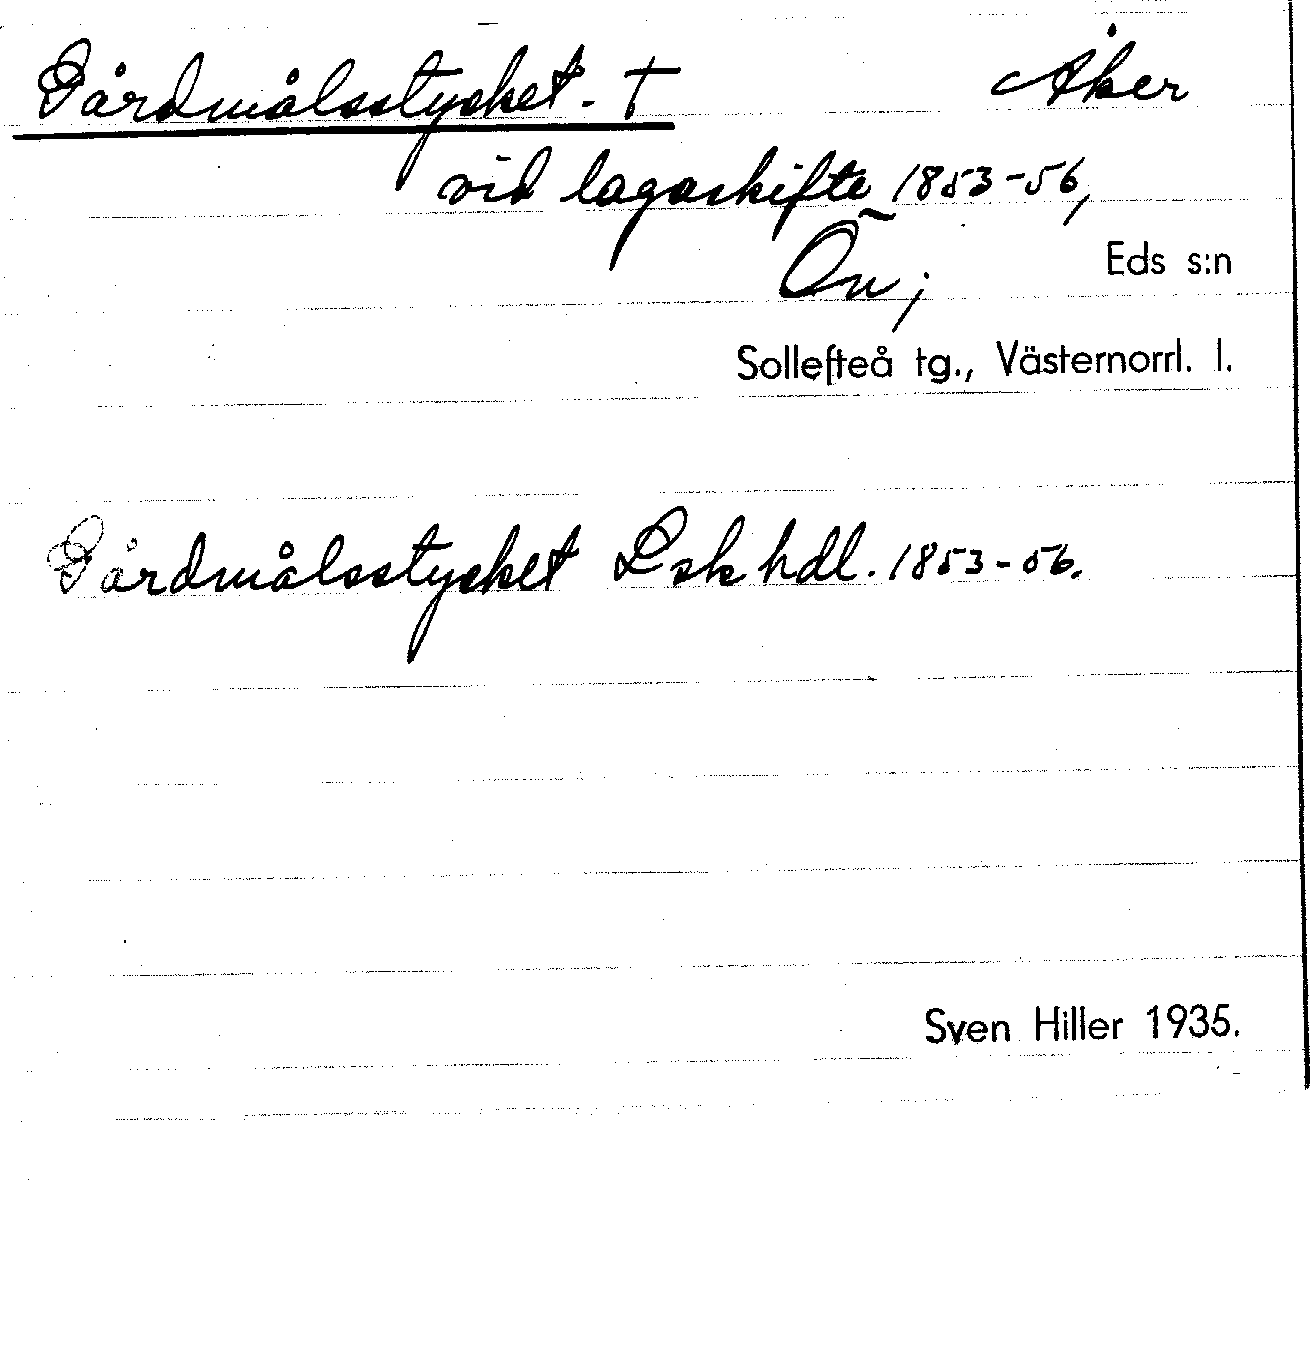 Gårdmålsstycket. † Åker
vid lagaskifte 1853-56,
Ön;
Eds s:n
Sollefteå tg., Västernorrl. l.
Gårdmålsstycket Lsk hdl. 1853-56.
Sven Hiller 1935.